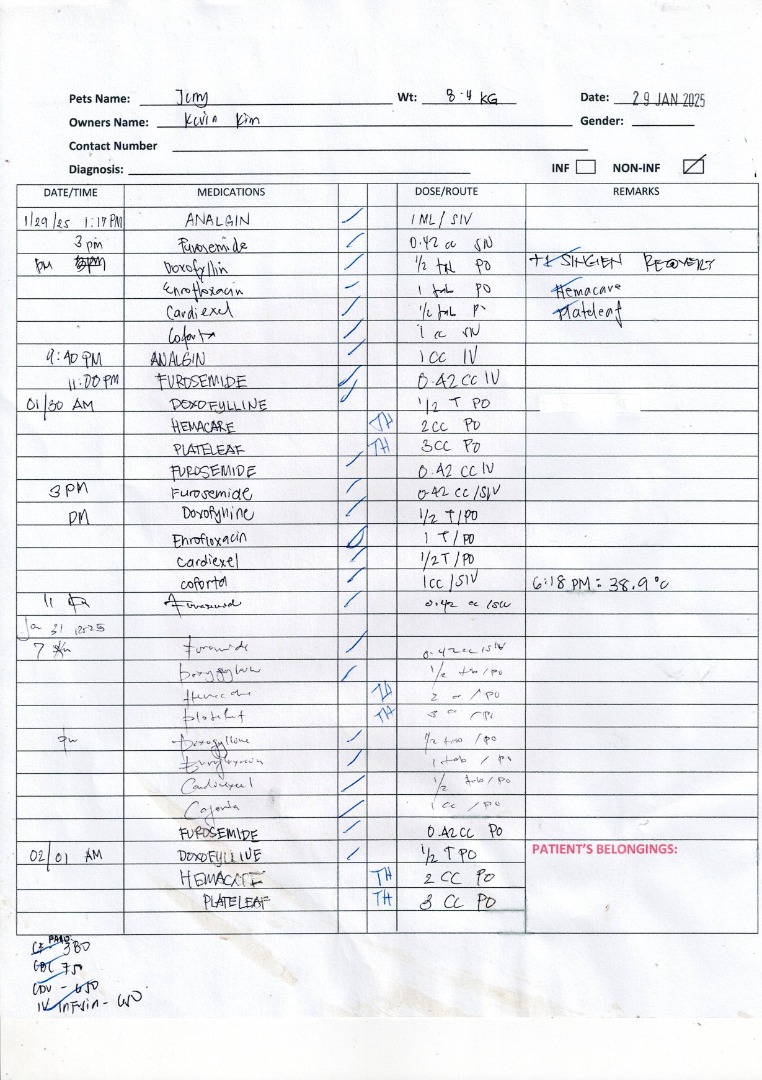 Pets Name: Wt: 8.4 KG Date: 29 JAN 2025
Owners Name: Kevin Kim Gender:
Contact Number
Diagnosis: INF NON-INF
DATE/TIME MEDICATIONS DOSE/ROUTE REMARKS
1/29/25 1:17 PM ANALGIN 1 ML / SIV
3 pm Furosemide 0.42 cc
PM Doxofyllin 1/2 tab PO SINGIEN RECOVERY
Enrofloxacin 1 tab PO Hemacare
Cardiexel 1/2 tab Plateleaf
Coforta 1 cc
9:40 PM ANALGIN 1CC IV
11:00 PM FUROSEMIDE 0.42 CC IV
01/30 AM DOXOFYLLINE 1/2 T PO
HEMACARE TH 2CC PO
PLATELEAF TH 3CC PO
FUROSEMIDE 0.42 CC IV
3 PM Furosemide 0.42 CC /SIV
PM Doxofylline 1/2 T/PO
Enrofloxacin 1 T/PO
Cardiexel 1/2 T/PO
coforta 1CC /SIV 6:18 PM = 38.9°C
11 0.42 cc
Jan 31 2025
7 0.42 cc
1/2 /PO
TH 2 cc /PO
TH 3 cc
1/2 tab /PO
1 tab /PO
Cardiexel 1/2 tab/PO
1 cc /PO
FUROSEMIDE 0.42CC PO
02/01 AM DOXOFYLLINE 1/2 T PO PATIENT'S BELONGINGS:
HEMACARE TH 2 CC PO
PLATELEAF TH 3 CC PO
PAID:
CF - 380
CBC 750
CDV - 650